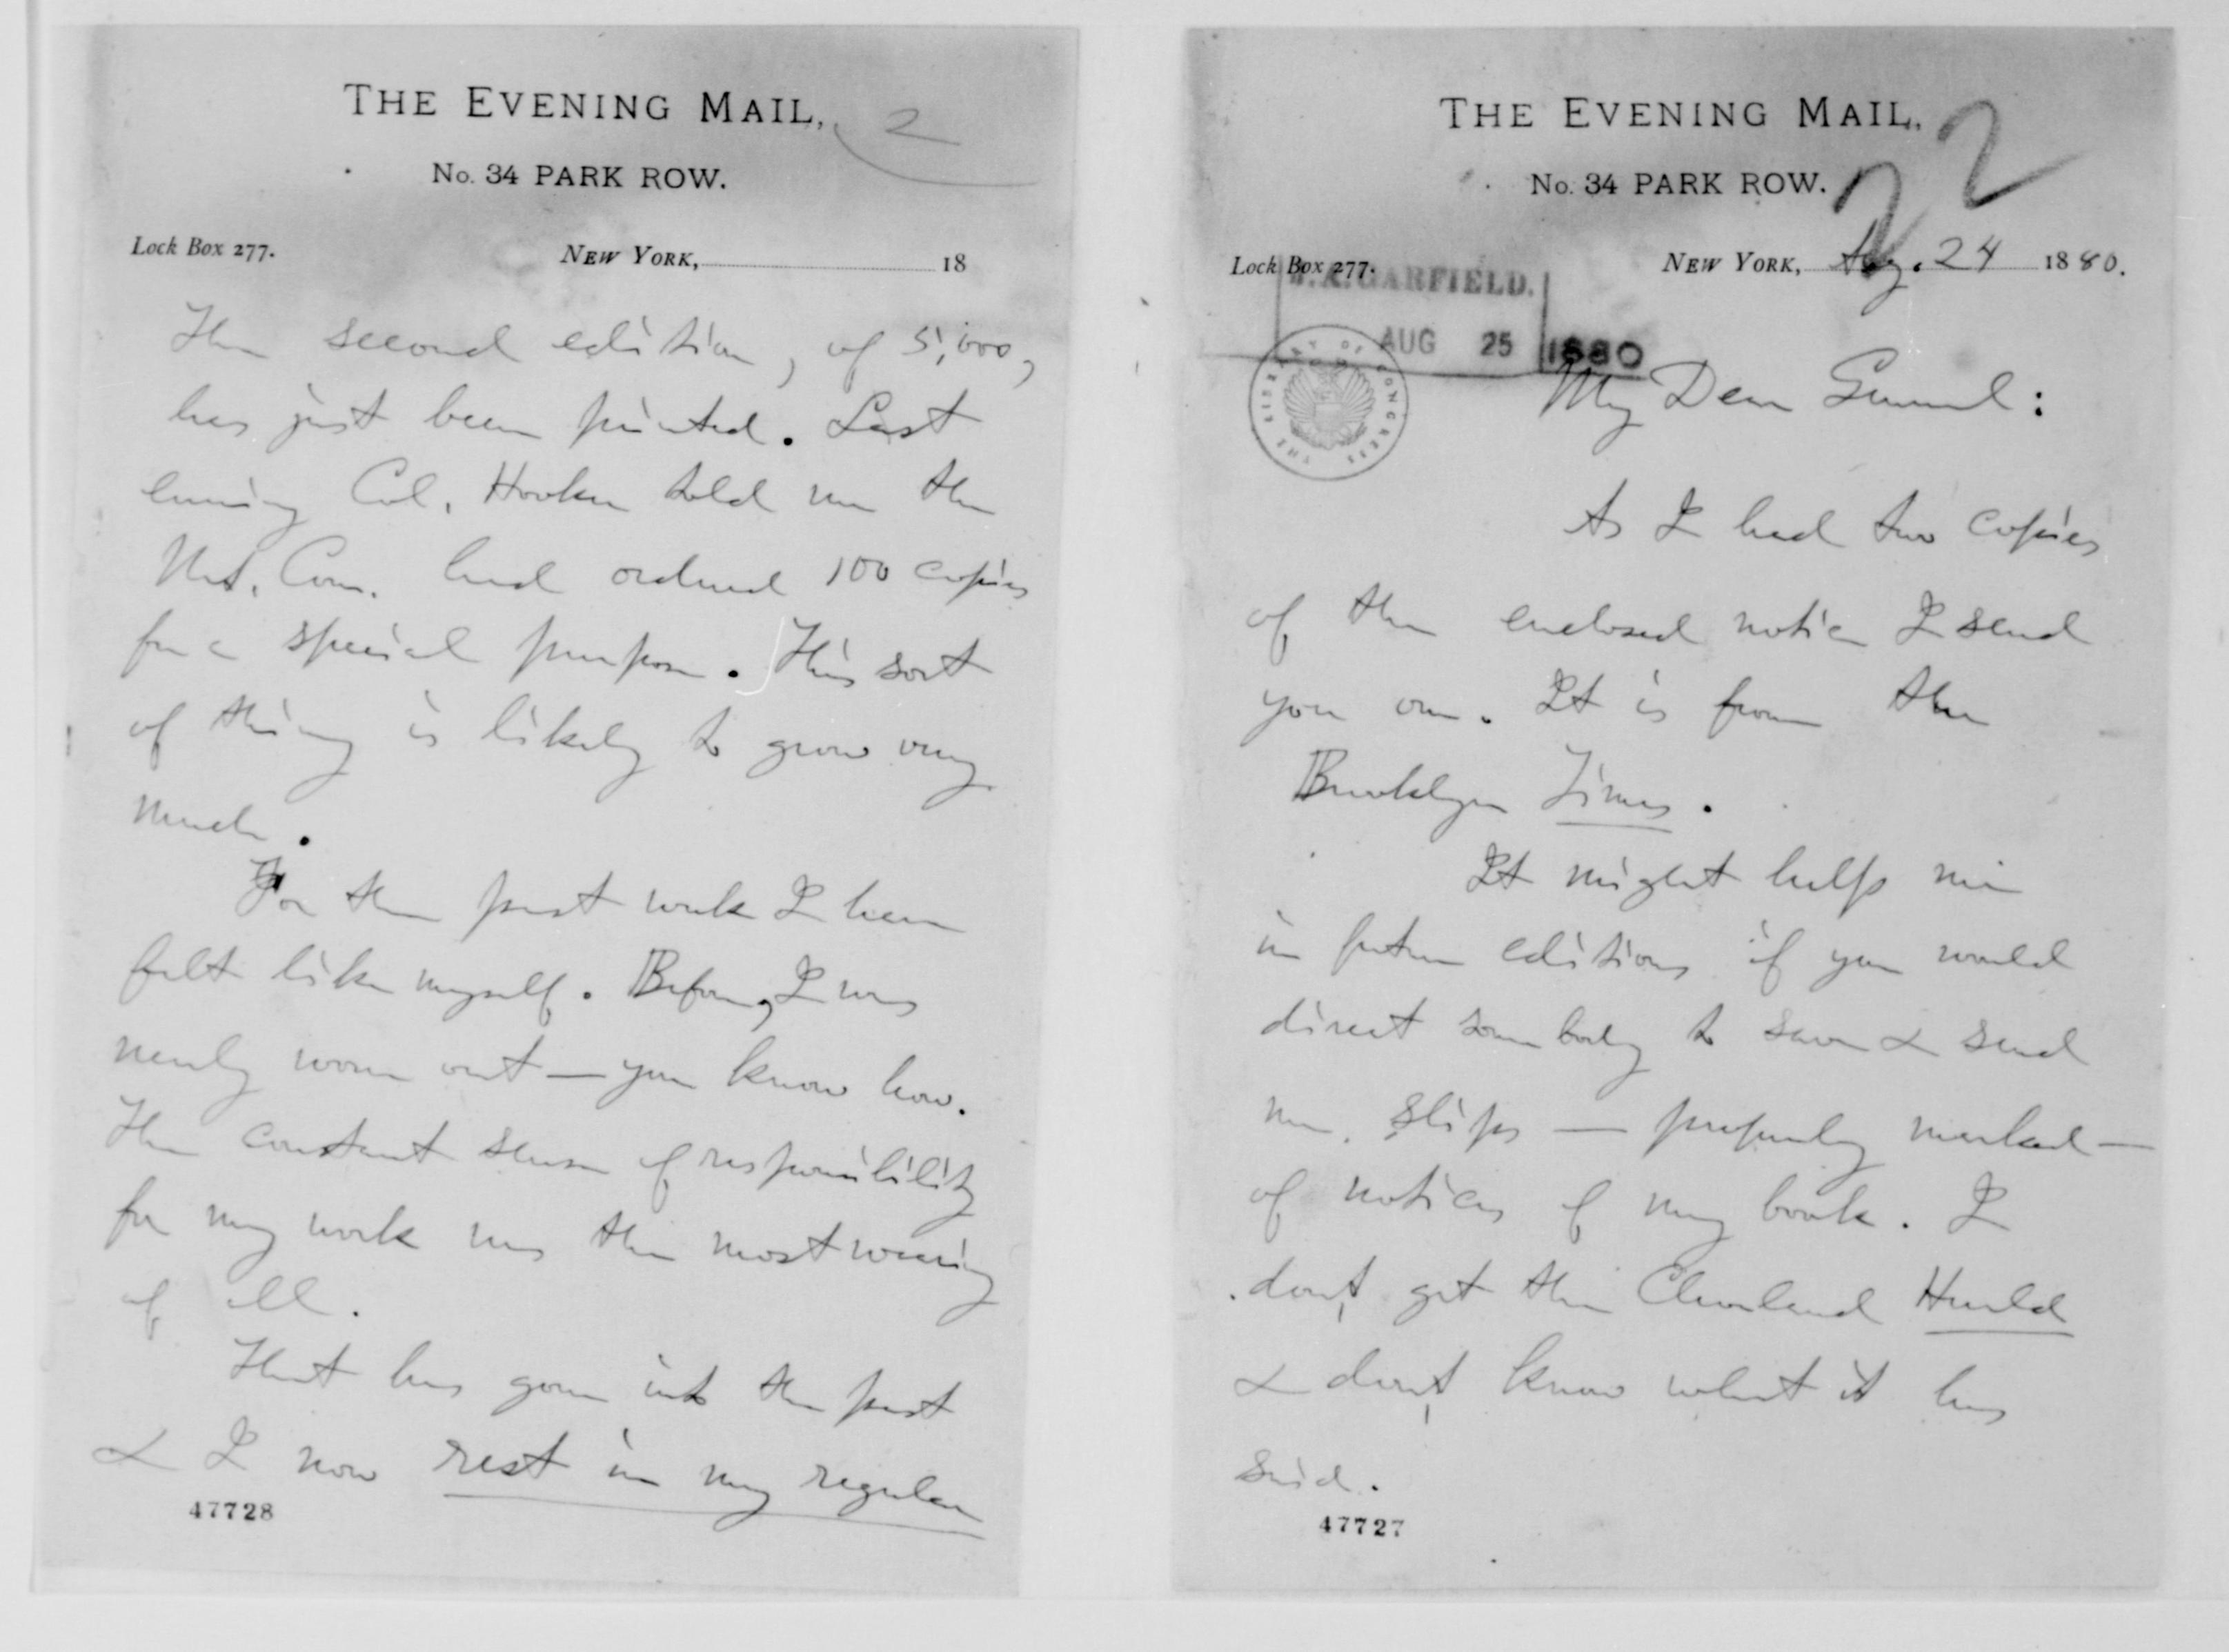 THE EVENING MAIL,
No. 34 PARK ROW.
22
Lock Box 277.
NEW YORK, Aug. 24 1880.
J. A. GARFIELD.
AUG 25 1880
THE LIBRARY OF CONGRESS
My Dear General:
As I had two copies
of the enclosed notice I send
you one. It is from the
Brooklyn Times.
It might help me
in future editions if you would
direct somebody to save & send
me slips — properly marked —
of notices of my book. I
don't get the Cleveland Herald
& don't know what it has
said.
47727
THE EVENING MAIL,
2
No. 34 PARK ROW.
Lock Box 277.
NEW YORK, 18
The second edition, of 5,000,
has just been printed. Last
evening Col. Hooker told me the
Nat. Com. had ordered 100 copies
for a special purpose. This sort
of thing is likely to grow very
much.
For the past week I have
felt like myself. Before, I was
nearly worn out — you know how.
The constant sense of responsibility
for my work was the most wearing
of all.
That has gone into the past
& I now rest in my regular
47728